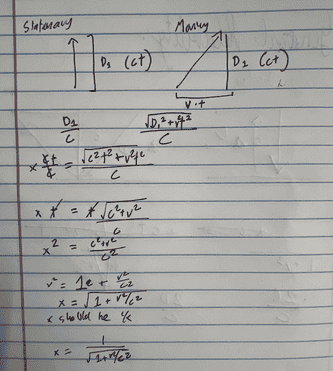 Stationary Moving
D₁ (ct) D₁ (ct)
v·t
D₁/c √(D₁²+v²t²)/c
x ct/c = √(c²t²+v²t²)/c
x t = t √(c²+v²)/c
x² = (c²+v²)/c²
x = √(1+v²/c²)
x should be 1/x
x = 1/√(1+v²/c²)